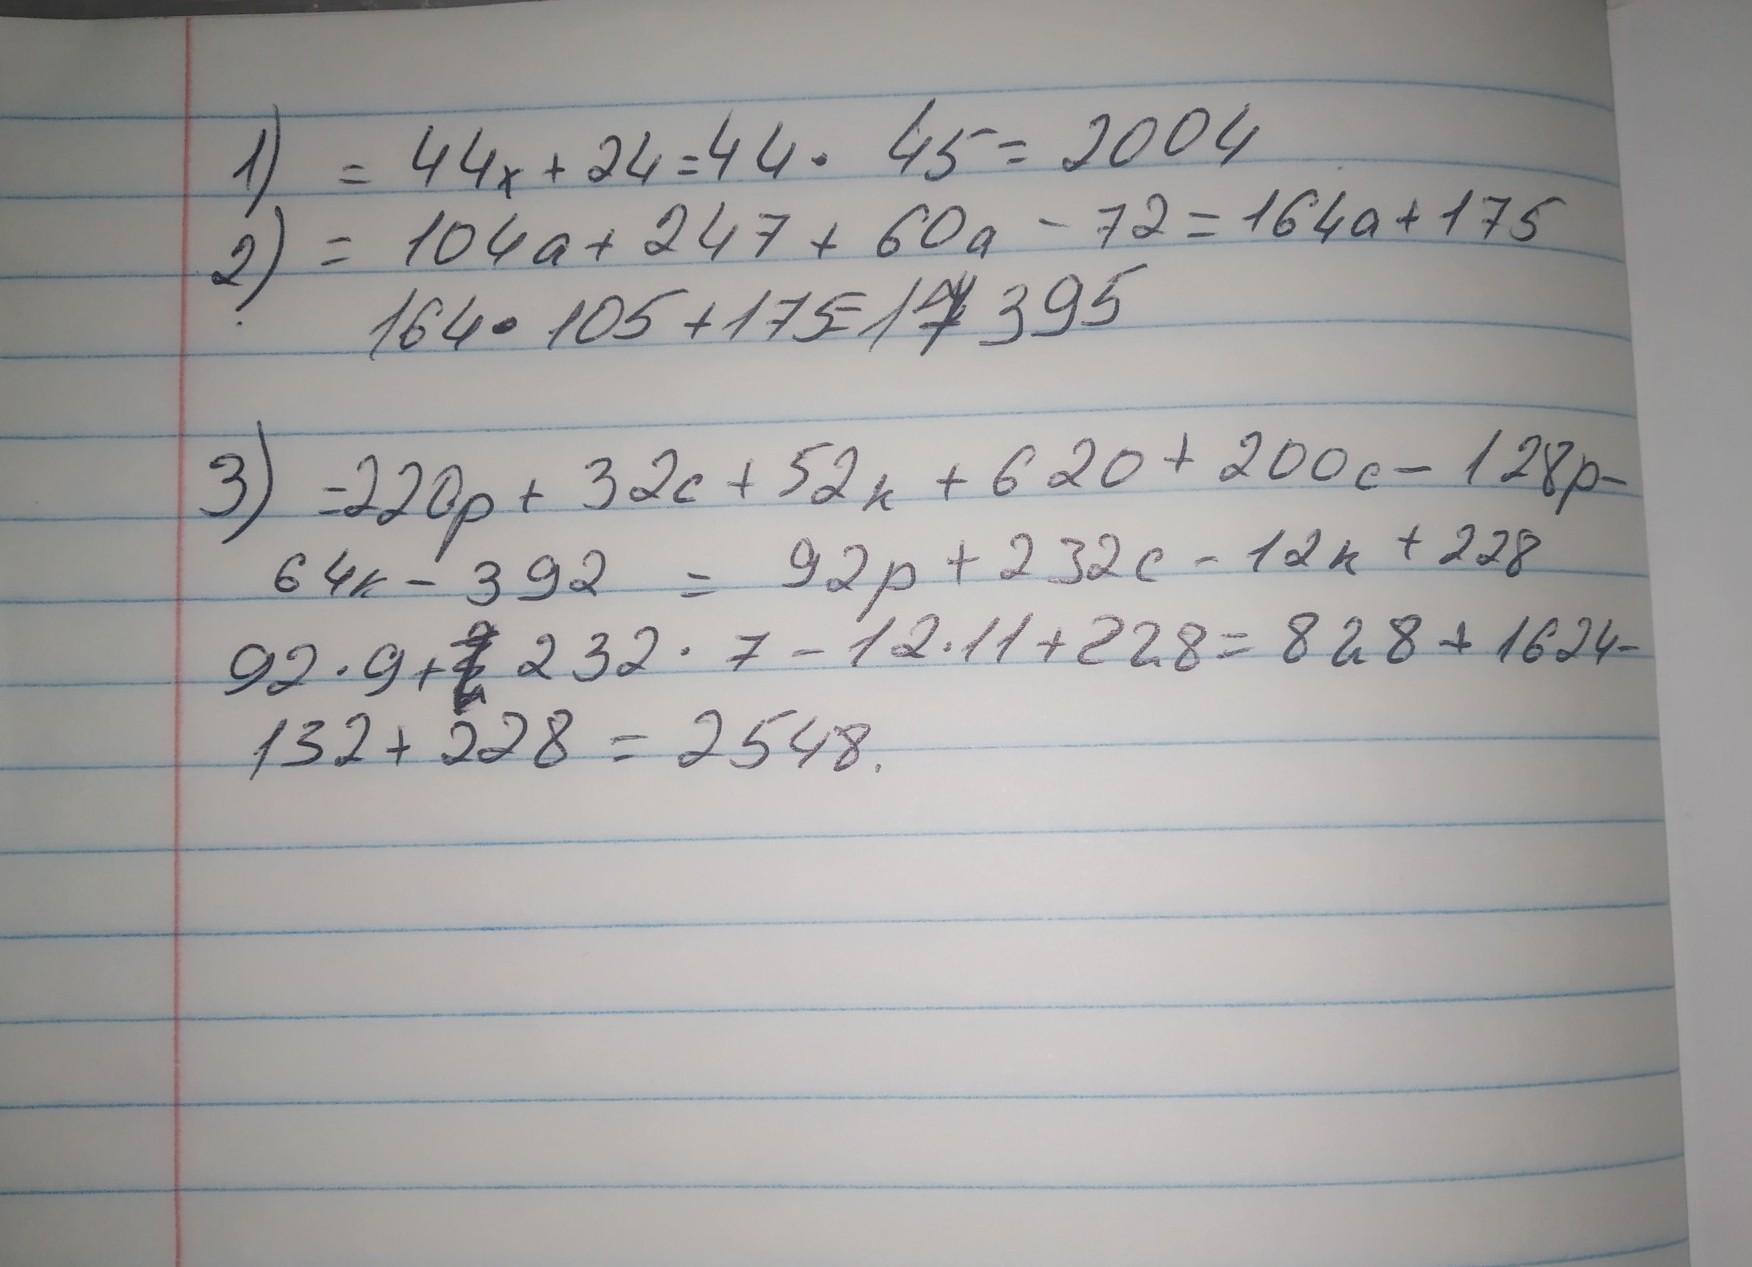 1) = 44x + 24 = 44 · 45 = 2004
2) = 104a + 247 + 60a - 72 = 164a + 175
164 · 105 + 175 = 17 395
3) = 220p + 32c + 52к + 620 + 200c - 128p -
64к - 392 = 92p + 232c - 12к + 228
92 · 9 + 232 · 7 - 12 · 11 + 228 = 828 + 1624 -
132 + 228 = 2548.